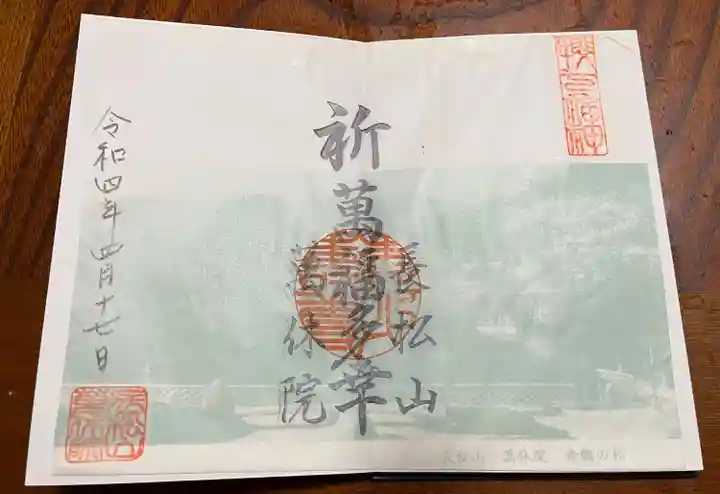 長松山
祈萬福多幸
萬休院
令和四年四月十七日
長松山 萬休院 舞鶴の松